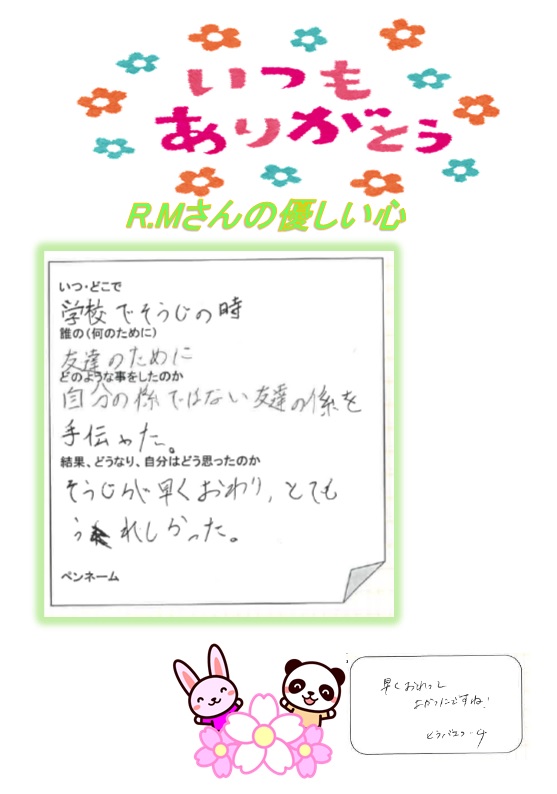 いつも
ありがとう
R.Mさんの優しい心
いつ・どこで
学校でそうじの時
誰の(何のために)
友達のために
どのような事をしたのか
自分の係ではない友達の係を
手伝った。
結果、どうなり、自分はどう思ったのか
そうじが早くおわり、とても
うれしかった。
ペンネーム
早くおわって
よかったですね!